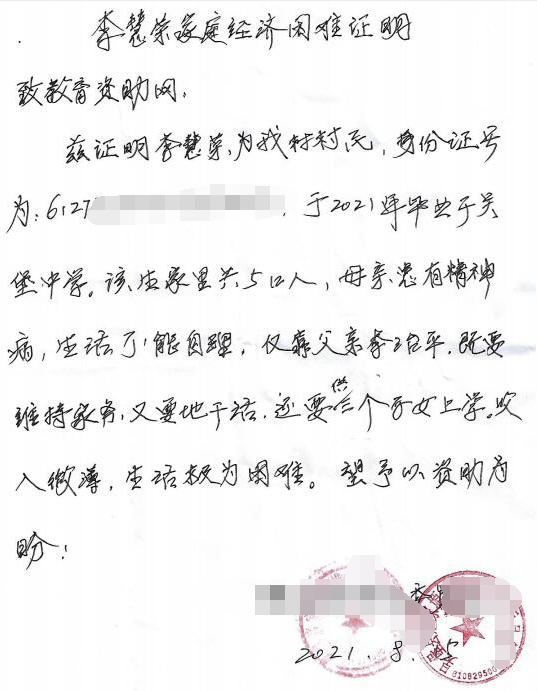 李慧荣家庭经济困难证明
致教育资助网：
兹证明李慧荣，为我村村民，身份证号
为：6127 ，于2021年毕业于关
堡中学。该生家里共5口人，母亲患有精神
病，生活不能自理，仅靠父亲李治平，既要
维持家务，又要地干活，还要供三个子女上学。收
入微薄，生活极为困难。望予以资助为
盼！
2021.8.5